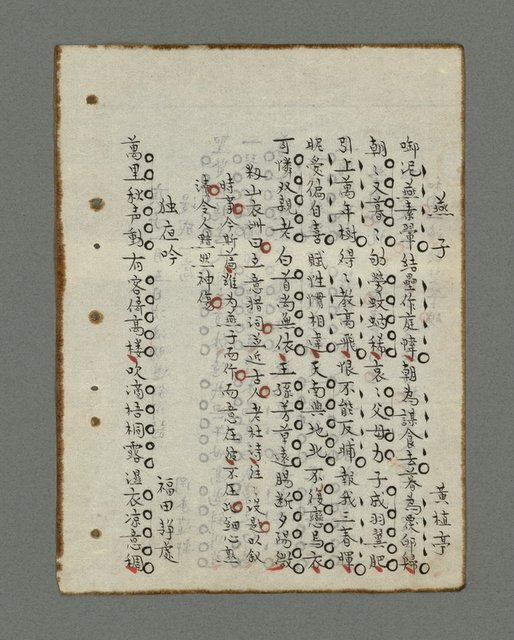 燕子
黃植亭
啣泥燕素翬結壘作庭幃朝為謀食去暮為覆卵歸
朝〻又暮〻劬勞蚊蚋稀哀〻父母力子成羽翼肥
引上萬年樹得〻教高飛恨不能反哺報我三春暉
昵愛偏自喜賦性慣相違天南與地北不復戀烏衣
可憐双親老白首尚無依王孫芳草遠腸斷夕陽微
籾山衣洲曰立意措詞並近古人老杜詩注 況意以叙
時事今斯篇雖為燕子而作而意在彼不在此細心熟
讀令人黯然神傷
独夜吟
福田靜處
萬里秋声動有客倚高樓吹滴梧桐露湿衣凉意稠